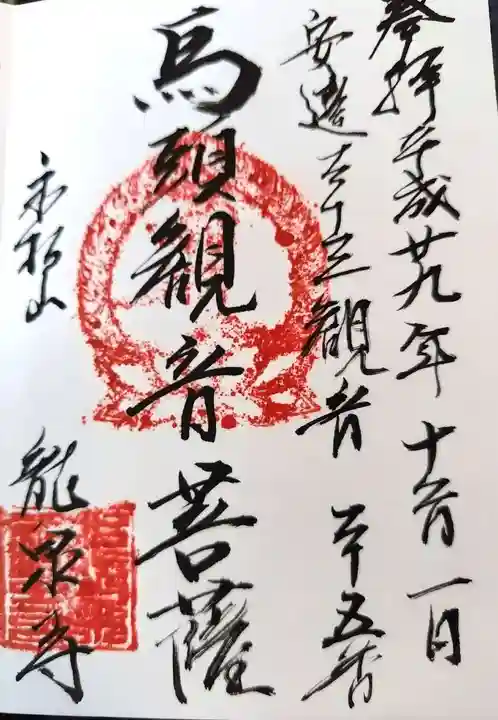 奉拝 平成廿九年 十一月 一日
安達三十三観音 二十五番
馬頭観音菩薩
永松山
龍泉寺